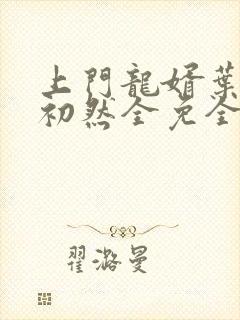 上門龍婿葉
初然全免全
翟潞曼